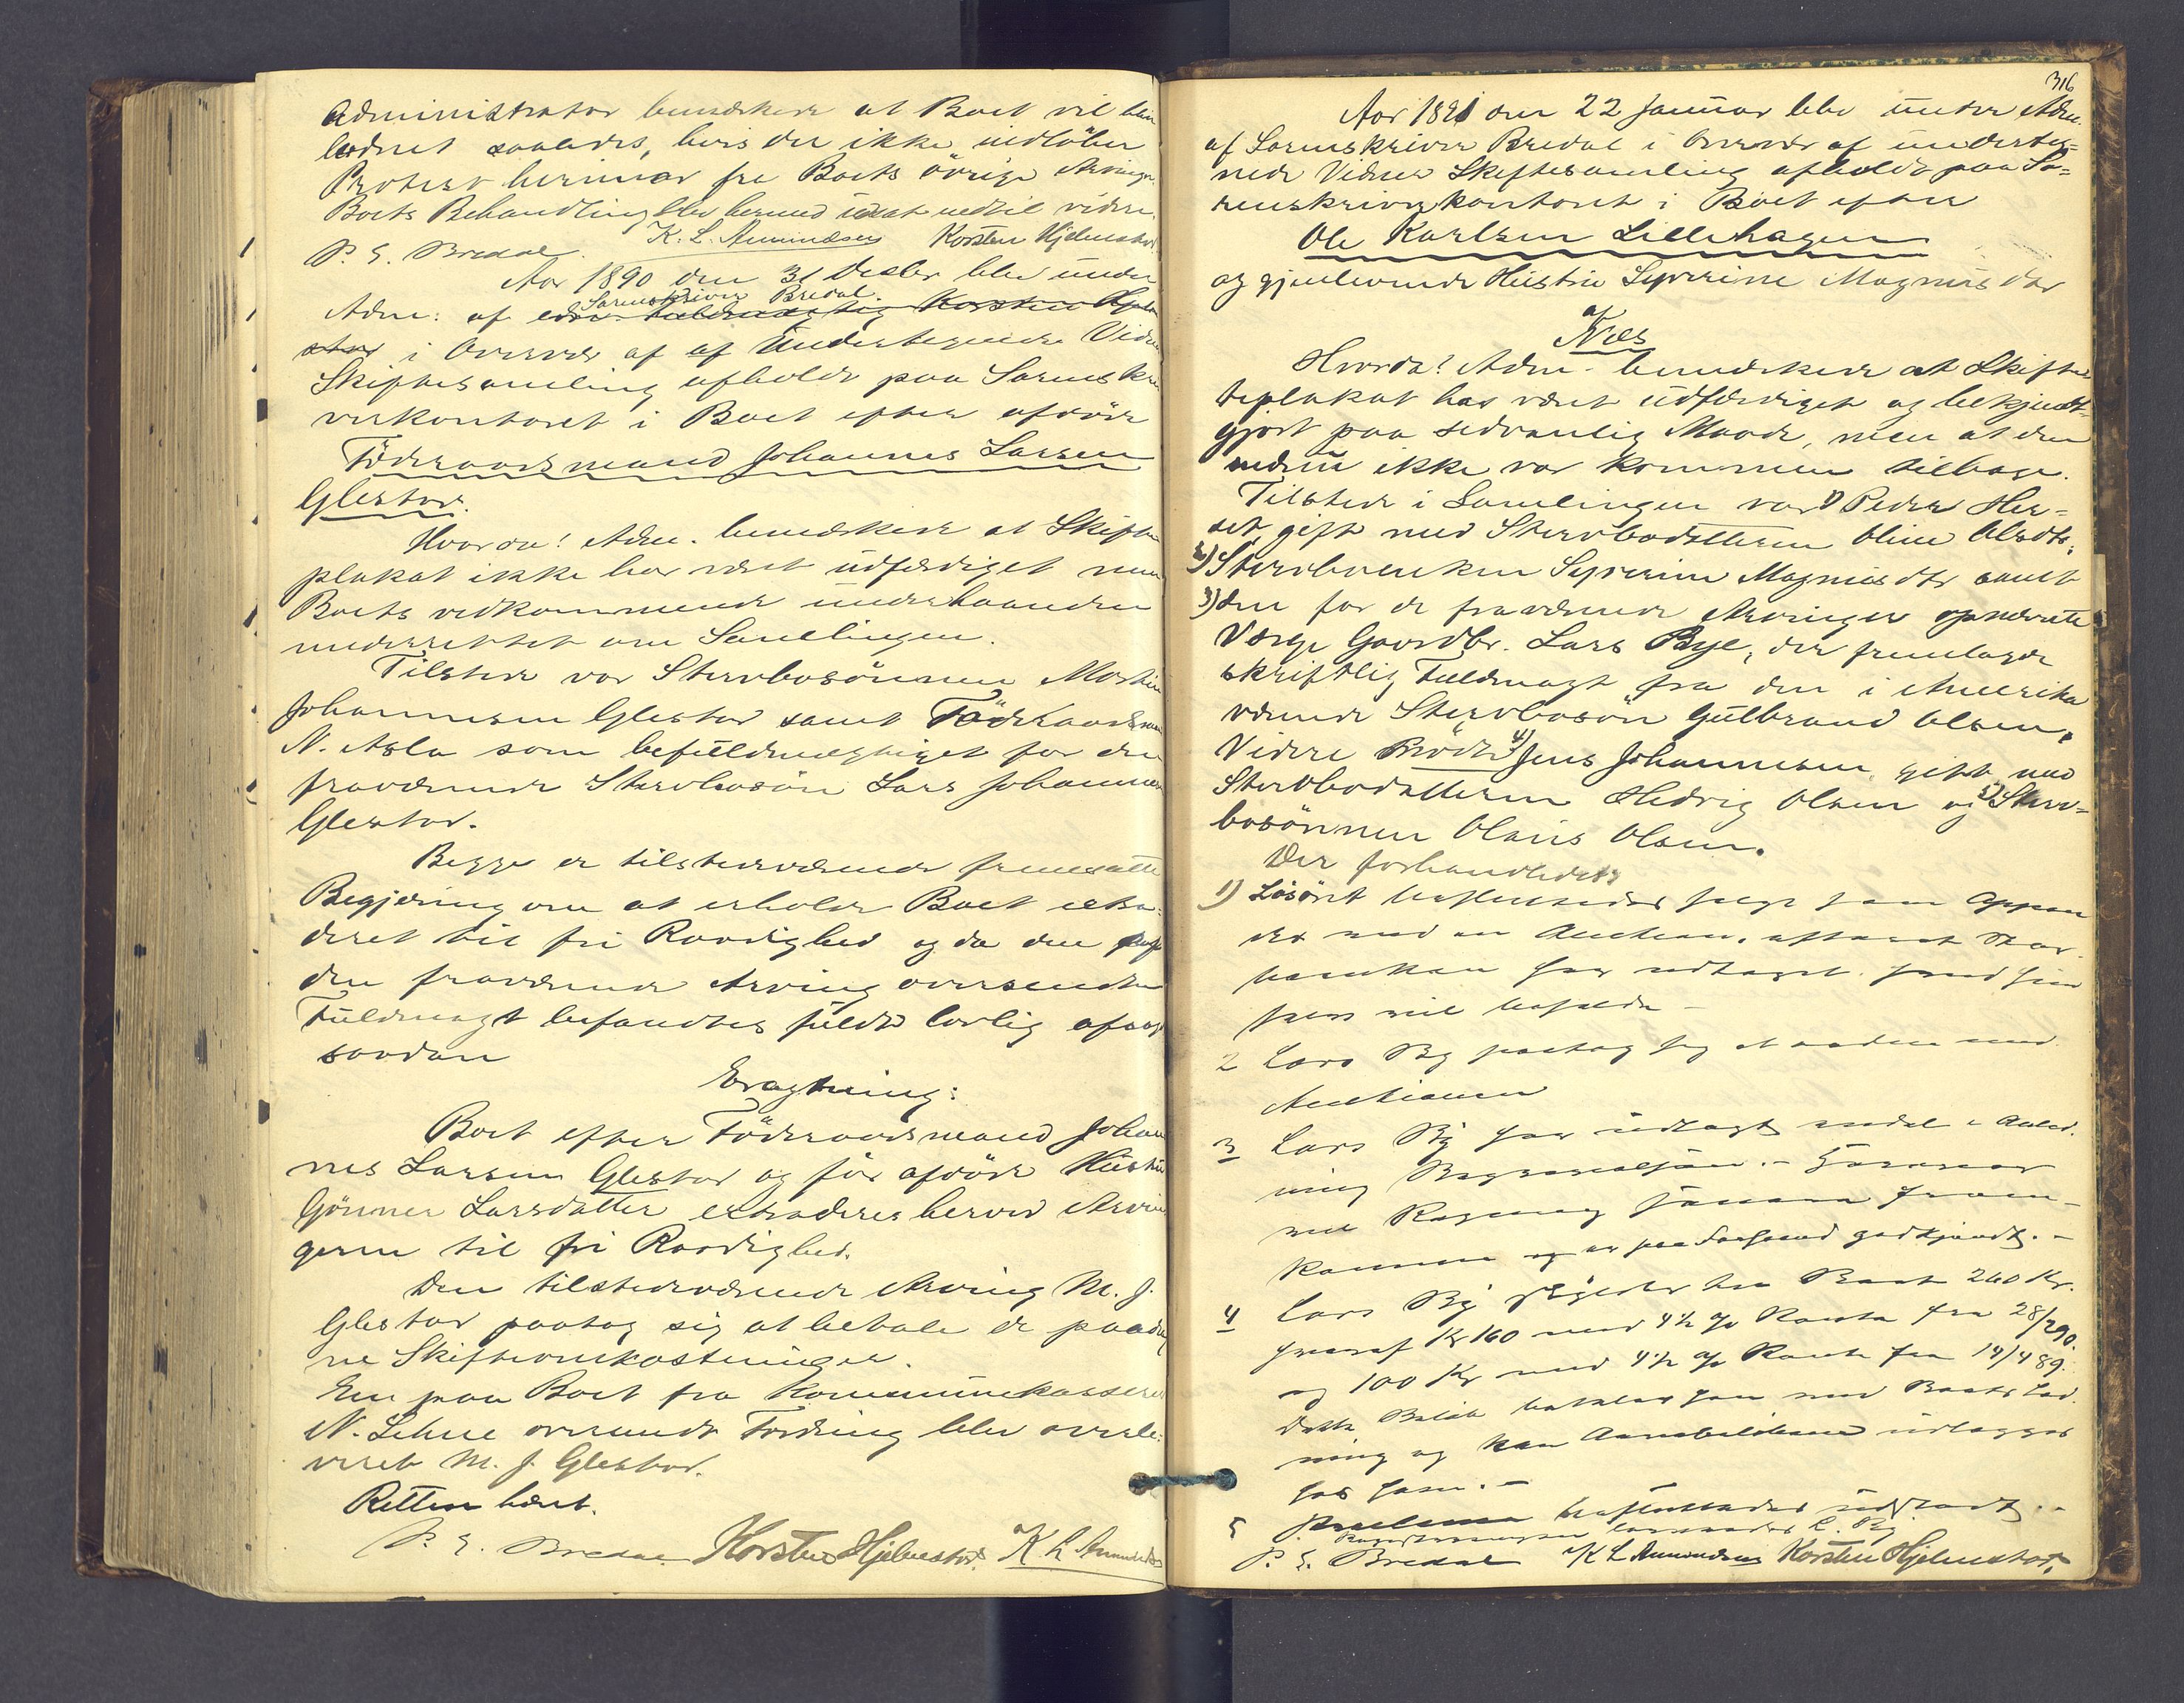 Administrator bemærkede at Boet vil blive
leveret saaledes, hvis der ikke indløber
Protest herimod fra Boets övrige Arvinger.
Boets Behandling blev hermed udsat indtil videre.
P. E. Bredal. K. L. Amundsen Korsten Hjelmstad
Aar 1890 den 31 Decbr blev under
Adm: af Sorenskriver Bredal.
i Overvær af af Undertegnede Vidner
Skiftesamling afholdt paa Sorenskri
verkontoret i Boet efter afdöde
Föderaadsmand Johannes Larsen
Glestad.
Hvorda! Adm. bemærkede at Skifte
plakat ikke har været udfærdiget men
Boets vedkommende underhaanden
underrettet om Samlingen.
Tilstede var Stervbosönnen Martin
Johannesen Glestad samt Föderaadsmand
N. Asla som befuldmægtiget for den
fraværende Stervbosön Lars Johannesen
Glestad.
Begge de tilstedeværende fremsatte
Begjæring om at erholde Boet extra=
deret til fri Raadighed og da den
den fraværende Arving oversendte
Fuldmagt befandtes fuldt lovlig afsag
saadan
Eragtning:
Boet efter Föderaadsmand Johan
nes Larsen Glestad og för afdöde Hustru
Gönner Larsdatter extraderes herved Arvin
gerne til fri Raadighed.
Den tilstedeværende Arving M. J.
Glestad paatog sig at betale de paadrag
ne Skifteomkostninger.
En paa Boet fra Kommunekasserer
N. Lehne oversendt Fordring blev overle=
veret M. J. Glestad.
Retten hævet.
P. E. Bredal Korsten Hjelmstad. K L Amundsen
316
Aar 1891 den 22 Januar blev under Adm.
af Sorenskriver Bredal i Overvær af underteg=
nede Vidner Skiftesamling afholdt paa So=
renskriverkontoret i Boet efter
Ole Karlsen Lillehagen
og gjenlevende Hustru Syverine Magnusdtr
af
Næs
Hvorda! Adm. bemærkede at Skifte
teplakat har været udfærdiget og bekjendt=
gjort paa sedvanlig Maade, men at den
endnu ikke var kommen tilbage.
Tilstede i Samlingen var 1) Peder Her=
set, gift med Stervbodatteren Oline Olsdtr,
2) Stervboenken Syverine Magnusdtr samt
3) den for de fraværende Arvinger opnævnte
Værge Gaardbr. Lars Bye, der fremlagde
skriftlig Fuldmagt fra den i Amerika
værende Stervbosön Gulbrand Olsen.
Videre mödte 4) Jens Johannesen gift med
Stervbodatteren Hedvig Olsen og 5) Sterv=
bosönnen Olaus Olsen.
Der forhandledes
1) Lösöret besluttedes
ved en Auction,
har udtaget hvad hun
selv vil beholde -
2 Lars By paatog sig at
Auctionen
3 Lars By har udlagt
ning
med Regning
komme og er paa Forhaand godkjendt. -
4 Lars By skylder til Boet 260 Kr.
hvoraf Kr 160 med 4½ % Rente fra 28/2 90.
og 100 Kr med 4½ % Rente fra 14/4 89.
Dette Belöb betales
ning og kan udlægges
hos ham. -
5 besluttedes
L. By
P. E. Bredal K L Amundsen Korsten Hjelmstad.